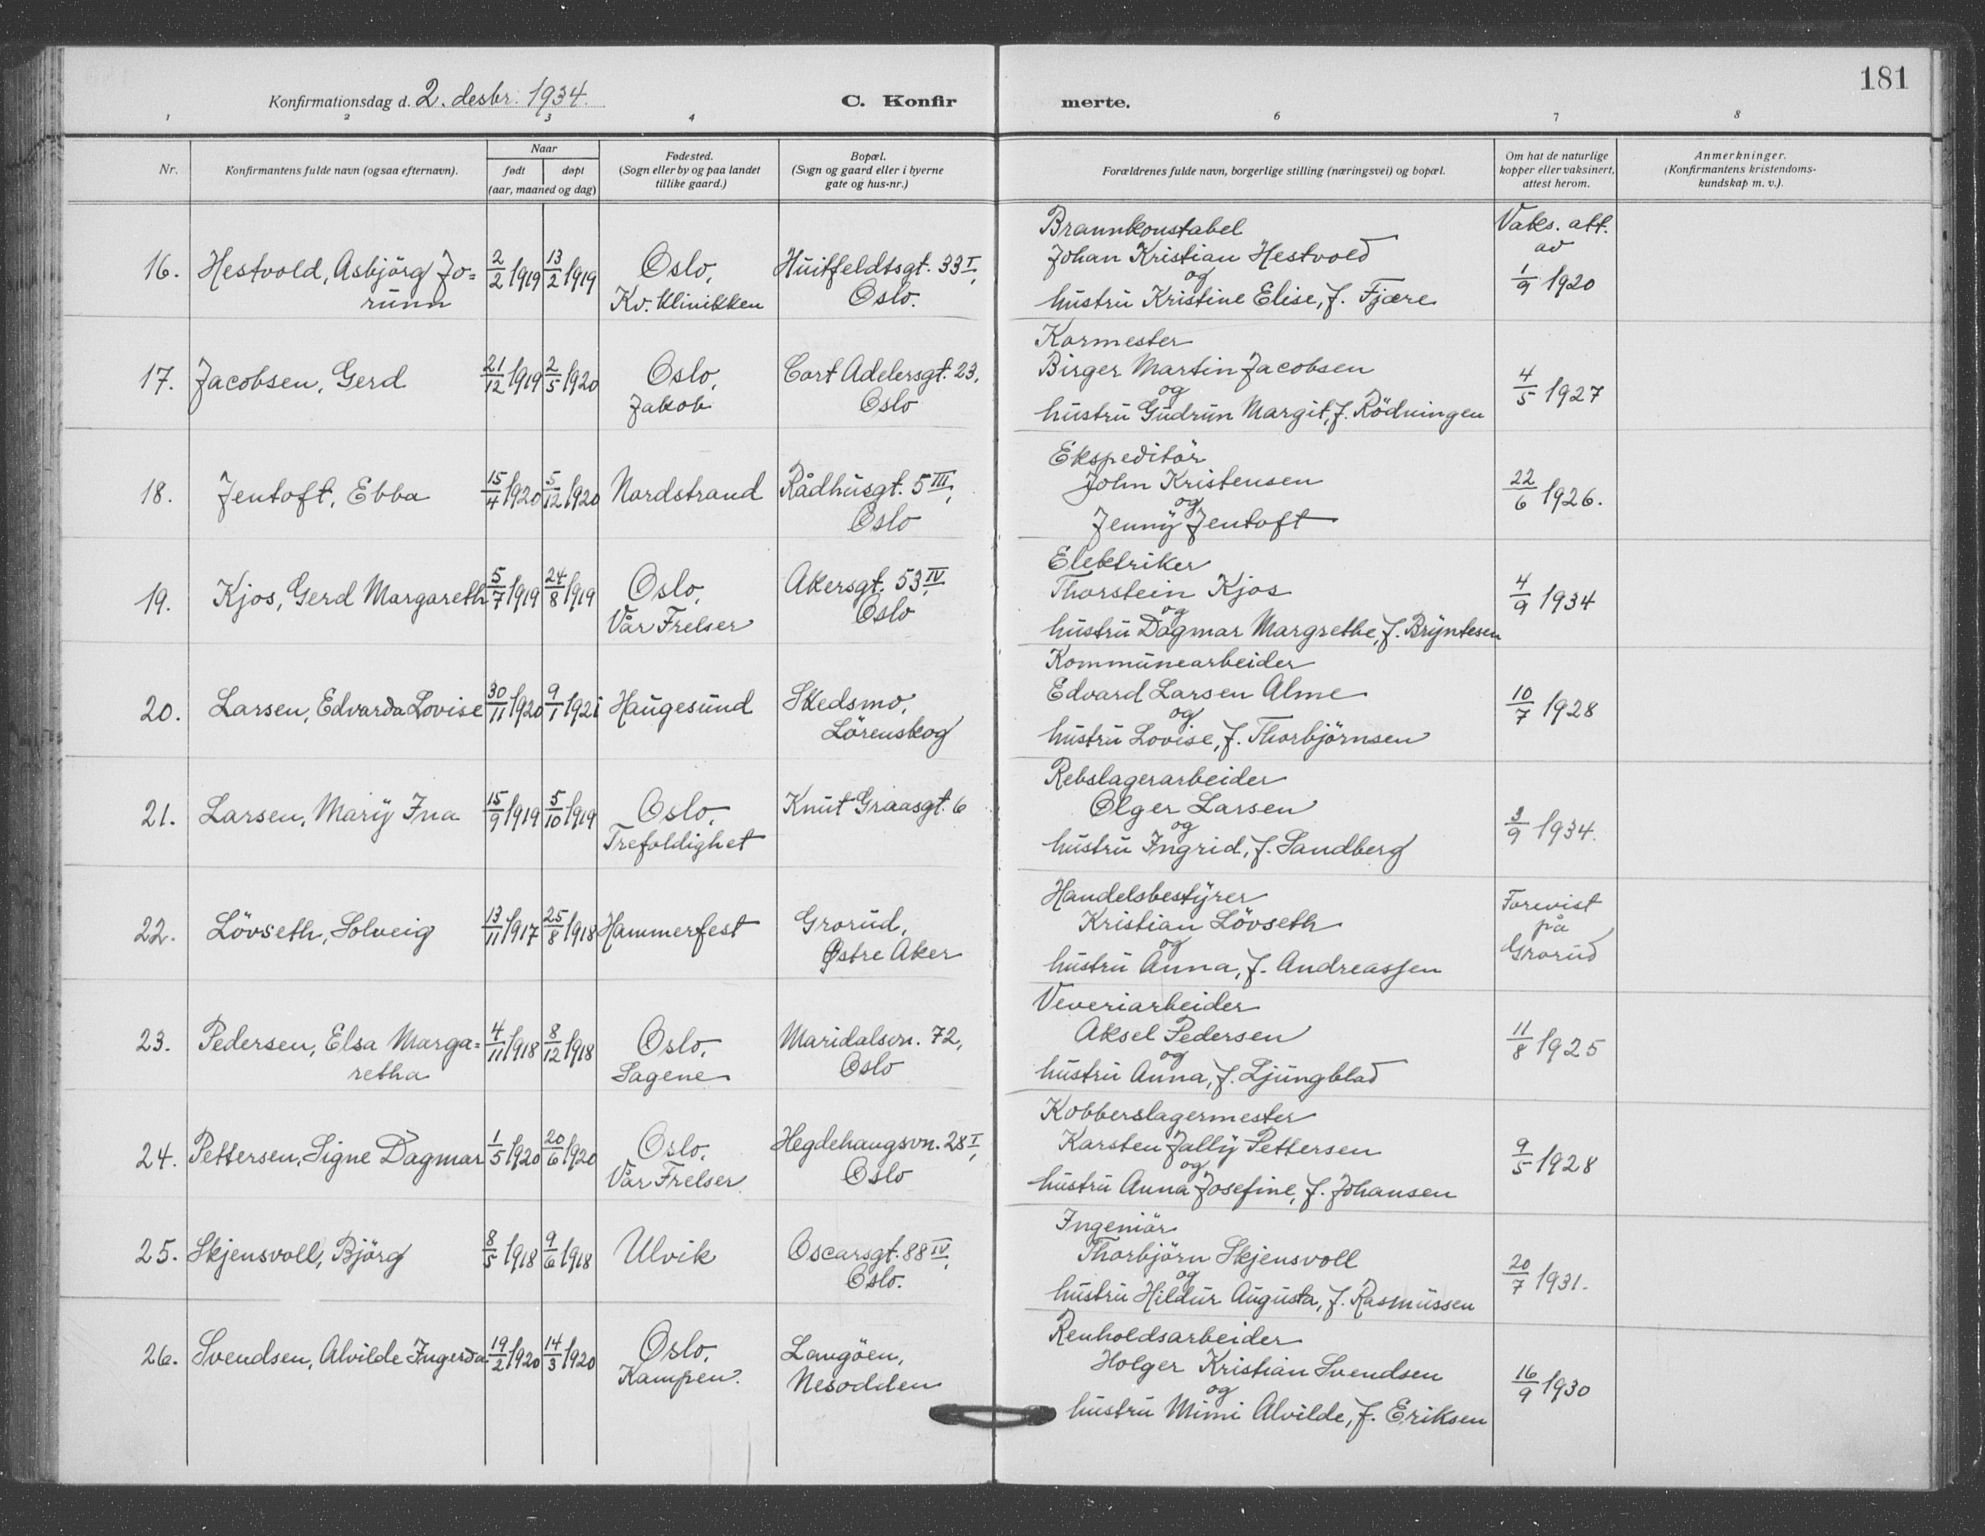 181
Konfirmationsdag d. 2. desbr. 1934. C. Konfirmerte.
1 2 3 4 6 7 8
Nr.
Konfirmantens fulde navn (ogsaa efternavn).
Naar
født døpt
(aar, maaned og dag)
Fødested.
(Sogn eller by og paa landet
tillike gaard.)
Bopæl.
(Sogn og gaard eller i byerne
gate og hus-nr.)
Forældrenes fulde navn, borgerlige stilling (næringsvei) og bopæl.
Om hat de naturlige
kopper eller vaksinert,
attest herom.
Anmerkninger.
(Konfirmantens kristendoms-
kundskap m. v.).
16. Hestvold, Asbjörg Jo=
runn
2/2 1919 13/2 1919
Oslo,
Kv. klinikken
Huitfeldtsgt. 33 I,
Oslo.
Brannkonstabel
Johan Kristian Hestvold
og
hustru Kristine Elise, f. Fjære
Vaks. att.
av
1/9 1920
17. Jacobsen, Gerd
21/12 1919 2/5 1920
Oslo,
Jakob
Cort Adelersgt. 23,
Oslo
Kormester
Birger Martin Jacobsen
og
hustru Gudrun Margit, f. Rödningen
4/5 1927
18. Jentoft, Ebba
15/4 1920 5/12 1920
Nordstrand
Rådhusgt. 5 III,
Oslo
Ekspeditör
John Kristensen
og
Jenny Jentoft
22/6 1926.
19. Kjos, Gerd Margareth
5/7 1919 24/8 1919
Oslo,
Vår Frelser
Akersgt. 53 IV,
Oslo
Elektriker
Thorstein Kjos
og
hustru Dagmar Margrethe, f. Bryntesen
4/9 1934
20. Larsen, Edvarda Lovise
30/11 1920 9/1 1921
Haugesund
Skedsmo,
Lörenskog
Kommunearbeider
Edvard Larsen Alme
og
hustru Lovise, f. Thorbjörnsen
10/7 1928
21. Larsen, Mary Ina
15/9 1919 5/10 1919
Oslo,
Trefoldighet
Knut Graasgt. 6
Rebslagerarbeider
Olger Larsen
og
hustru Ingrid, f. Sandberg
3/9 1934.
22. Lövseth, Solveig
13/11 1917 25/8 1918
Hammerfest
Grorud,
Østre Aker
Handelsbestyrer
Kristian Lövseth
og
hustru Anna, f. Andreassen
Forevist
på
Grorud
23. Pedersen, Elsa Marga=
retha
4/11 1918 8/12 1918
Oslo,
Sagene
Maridalsvn. 72,
Oslo
Veveriarbeider
Aksel Pedersen
og
hustru Anna, f. Ljungblad
11/8 1925
24. Pettersen, Signe Dagmar
1/5 1920 20/6 1920
Oslo,
Vår Frelser
Hegdehaugsvn. 28 I,
Oslo
Kobberslagermester
Karsten Jally Pettersen
og
hustru Anna Josefine, f. Johansen
9/5 1928
25. Skjensvoll, Björg
8/5 1918 9/6 1918
Ulvik
Oscarsgt. 88 IV,
Oslo.
Ingeniör
Thorbjörn Skjensvoll
og
hustru Hildur Augusta, f. Rasmussen
20/7 1931.
26. Svendsen, Alvilde Ingerda
19/2 1920 14/3 1920
Oslo,
Kampen.
Langöen,
Nesodden
Renholdsarbeider
Holger Kristian Svendsen
og
hustru Mimi Alvilde, f. Eriksen
16/9 1930